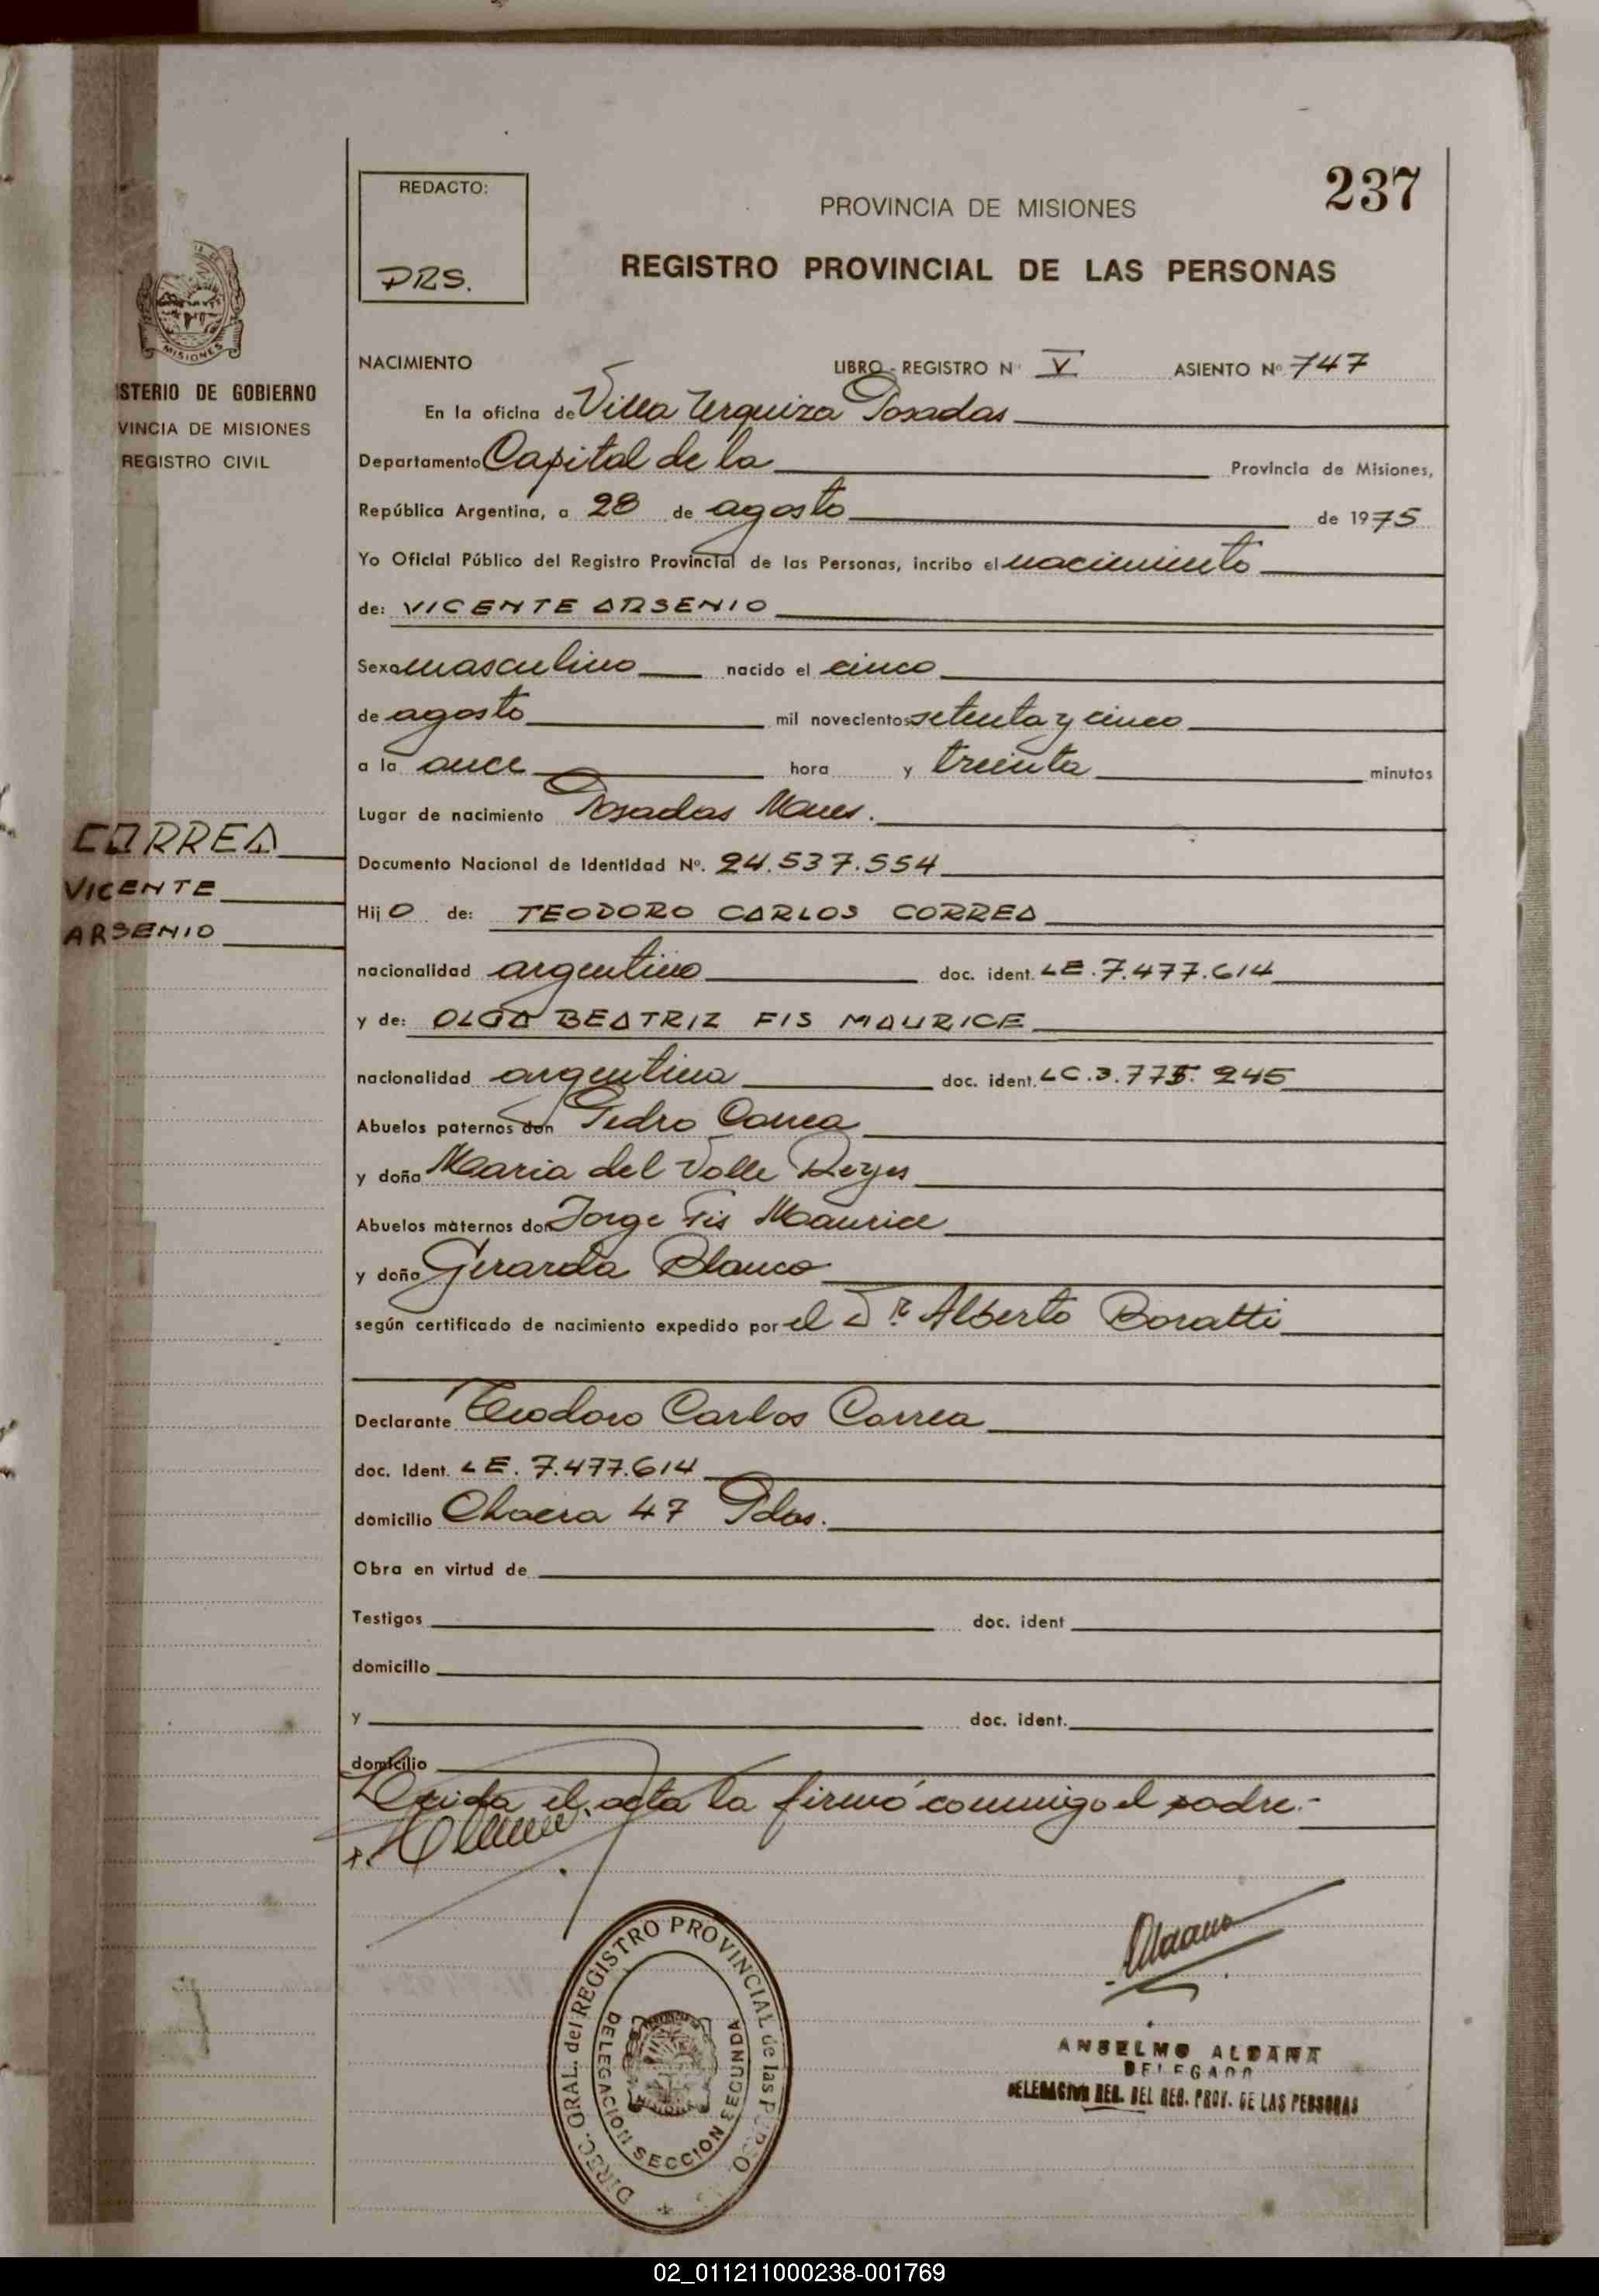 237
REDACTO:
PRS.
PROVINCIA DE MISIONES
REGISTRO PROVINCIAL DE LAS PERSONAS
MISIONES
ISTERIO DE GOBIERNO
VINCIA DE MISIONES
REGISTRO CIVIL
NACIMIENTO LIBRO - REGISTRO Nº V ASIENTO Nº 747
En la oficina de Villa Urquiza Posadas
Departamento Capital de la Provincia de Misiones,
República Argentina, a 28 de agosto de 1975
Yo Oficial Público del Registro Provincial de las Personas, incribo el nacimiento
de: VICENTE ARSENIO
Sexo masculino nacido el cinco
de agosto mil novecientos setenta y cinco
a la once hora y treinta minutos
Lugar de nacimiento Posadas Mnes.
CORREA
VICENTE
ARSENIO
Documento Nacional de Identidad Nº. 24.537.554
Hij O de: TEODORO CARLOS CORREA
nacionalidad argentino doc. ident. LE. 7.477.614
y de: OLGA BEATRIZ FIS MAURICE
nacionalidad argentina doc. ident. LC. 3.775.245
Abuelos paternos don Pedro Correa
y doña Maria del Valle Reyes
Abuelos maternos don Jorge Fis Maurice
y doña Gerarda Blanco
según certificado de nacimiento expedido por el Dr. Alberto Boratti
Declarante Teodoro Carlos Correa
doc. Ident. LE. 7.477.614
domicilio Chacra 47 Pdas.
Obra en virtud de
Testigos doc. ident
domicilio
y doc. ident.
domicilio
Leida el acta la firmó conmigo el padre.-
DIREC. GRAL. del REGISTRO PROVINCIAL de las PERSONAS
DELEGACION SECCION SEGUNDA
ANSELMO ALDANA
DELEGADO
DELEGACION REG. DEL REG. PROV. DE LAS PERSONAS
02_011211000238-001769